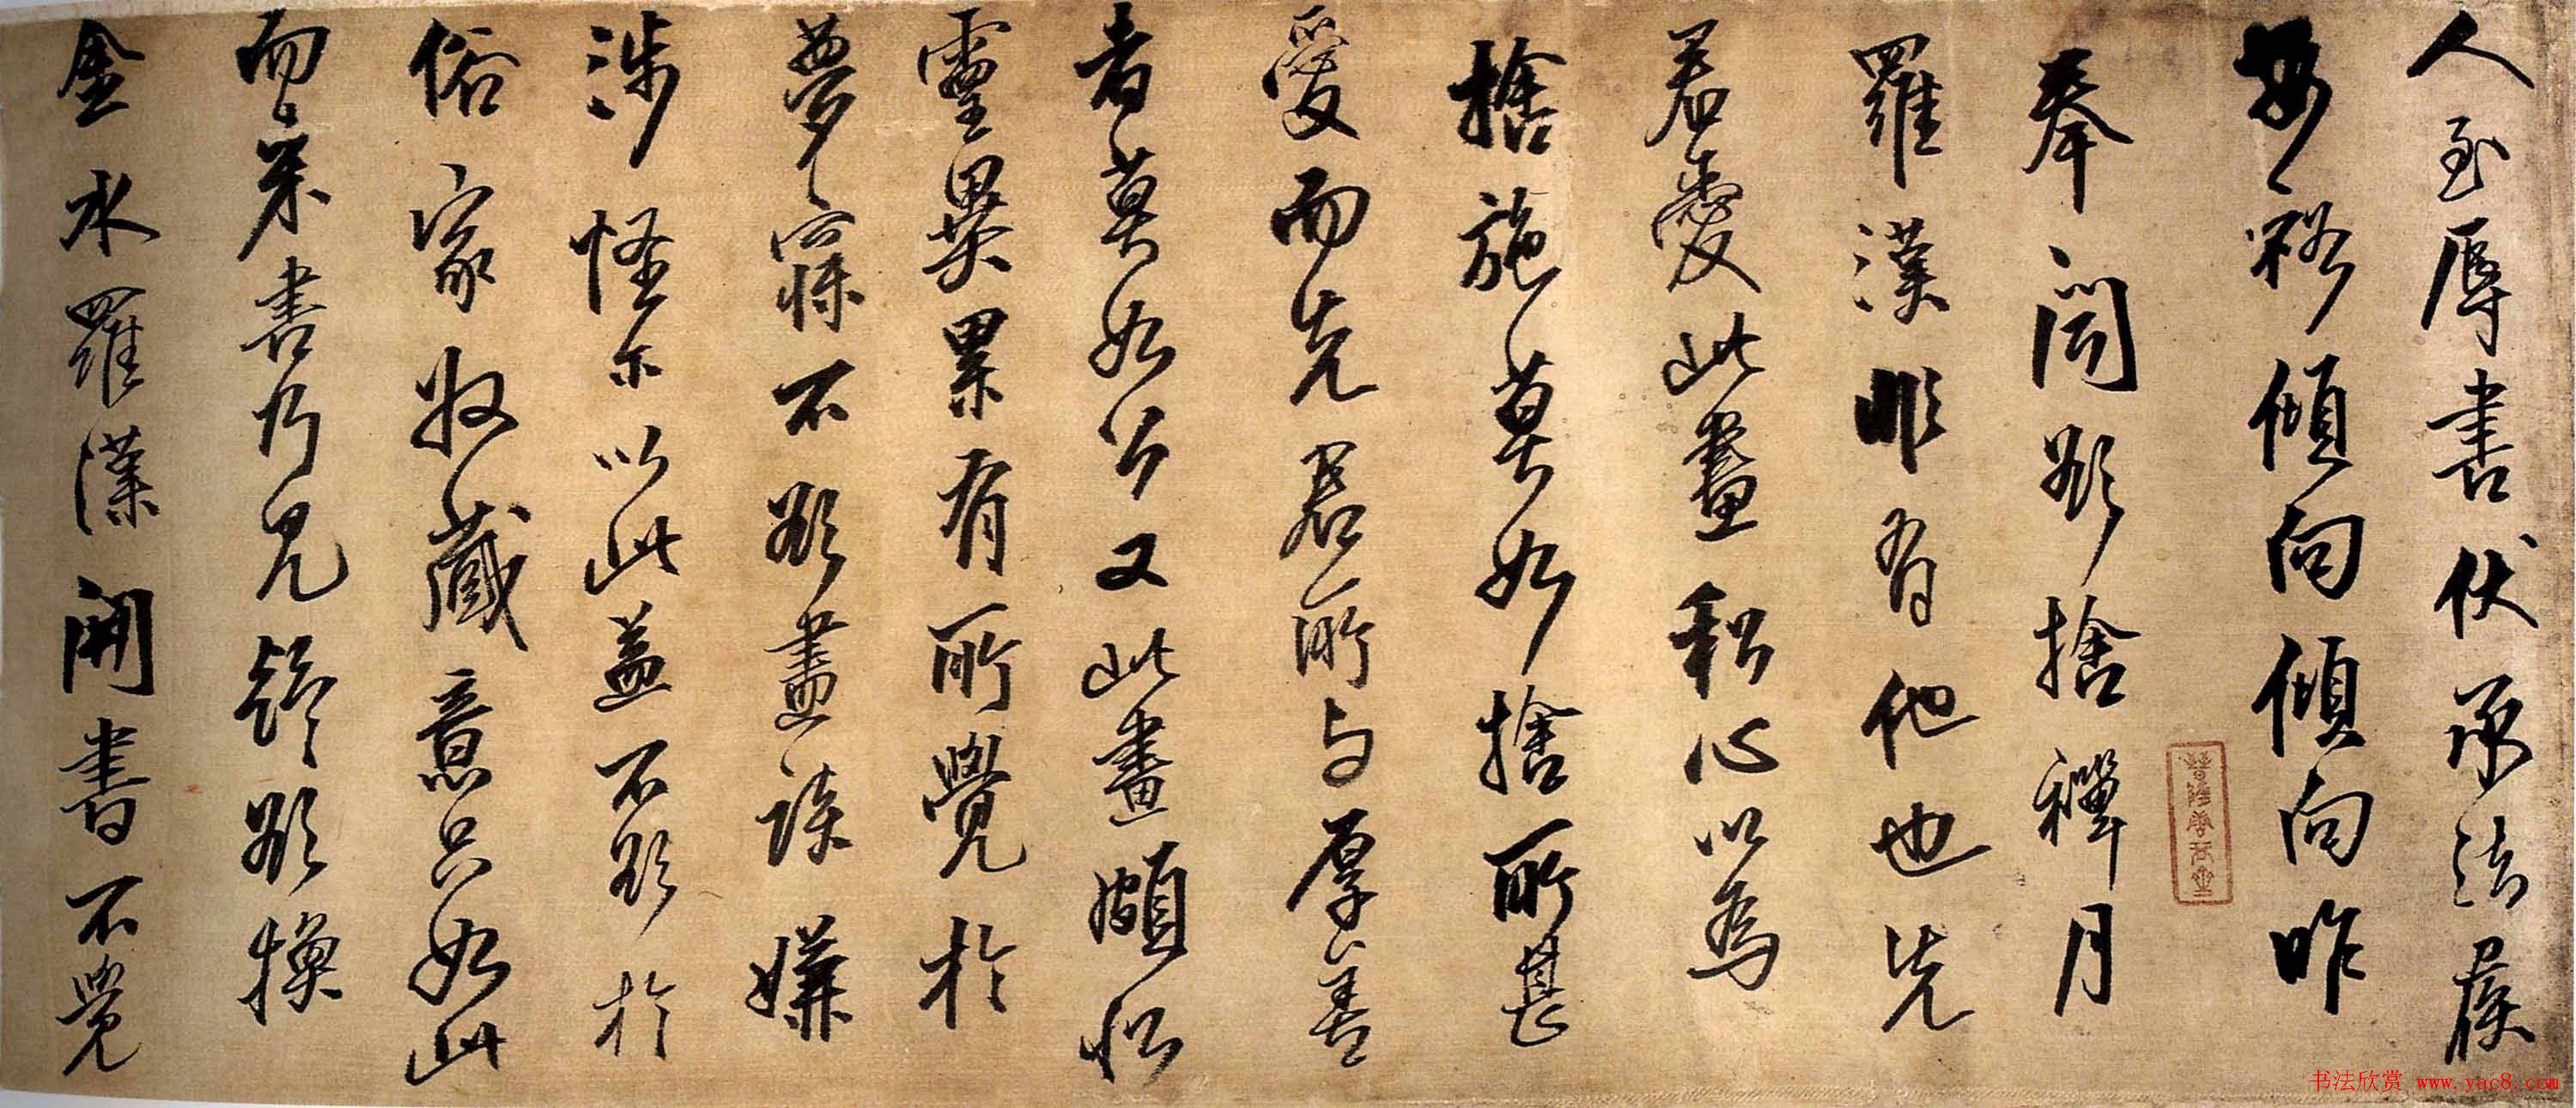 人至辱書伏承法候
安裕傾向傾向昨
奉聞欲捨禪月
羅漢非有他也先
君愛此畫私心以為
捨施莫如捨所甚
愛而先君所与厚善
者莫如公又此畫頗似
靈異累有所覺於
夢寐不欲盡談嫌
涉怪尓以此盖不欲於
俗家收藏意只如此
而來書乃見疑欲換
金水羅漢開書不覺
书法欣赏 www.yac8.com